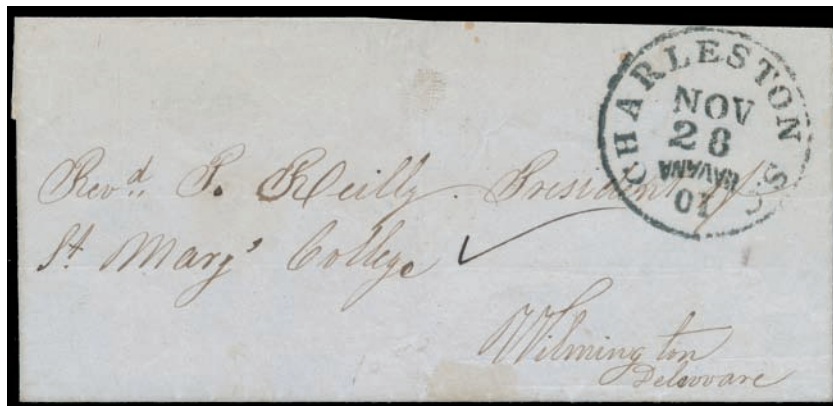 CHARLESTON S.C.
NOV
28
HAVANA
10
Revd. P. Reilly. President of
St. Mary's College
Wilmington
Delaware